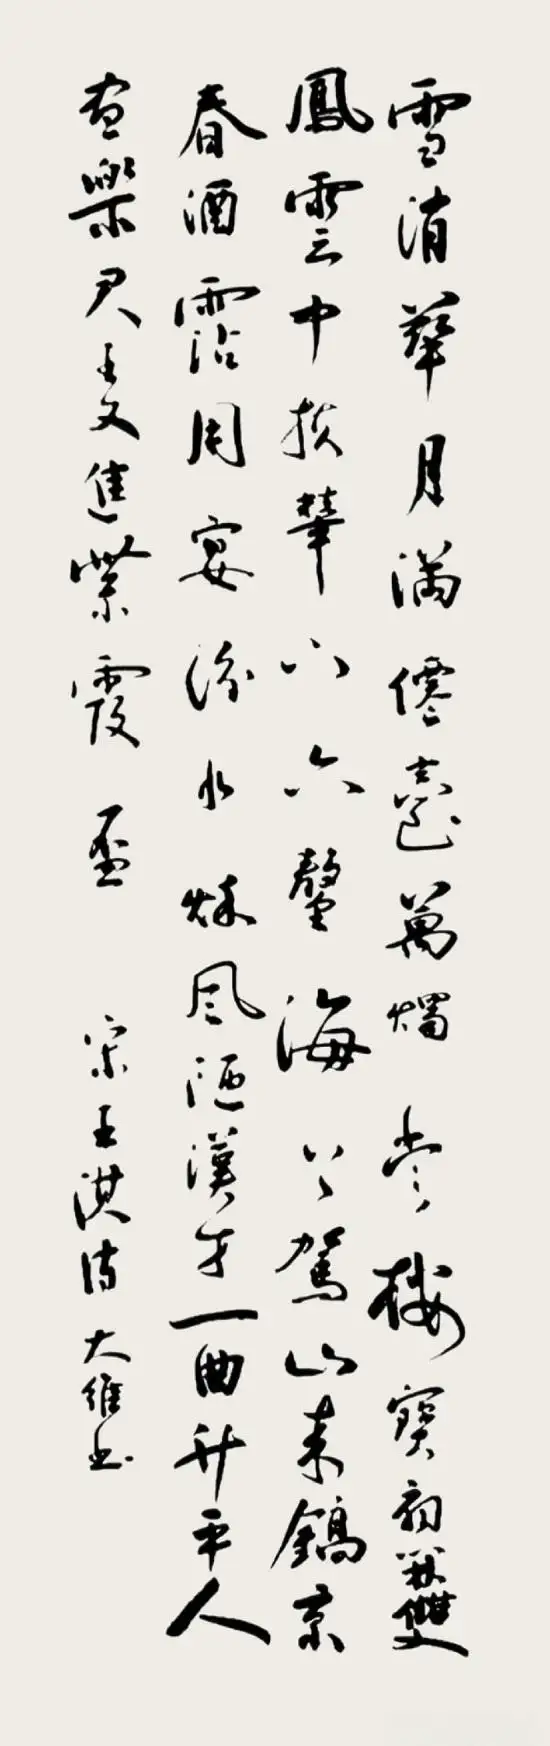 雪消華月滿僊臺萬燭當樓寶扇開雙
鳳雲中扶輦下六鼇海上駕山来鎬京
春酒霑周宴汾水秋風陋漢才一曲升平人
盡樂君王又進紫霞盃 宋王淇詩大維書